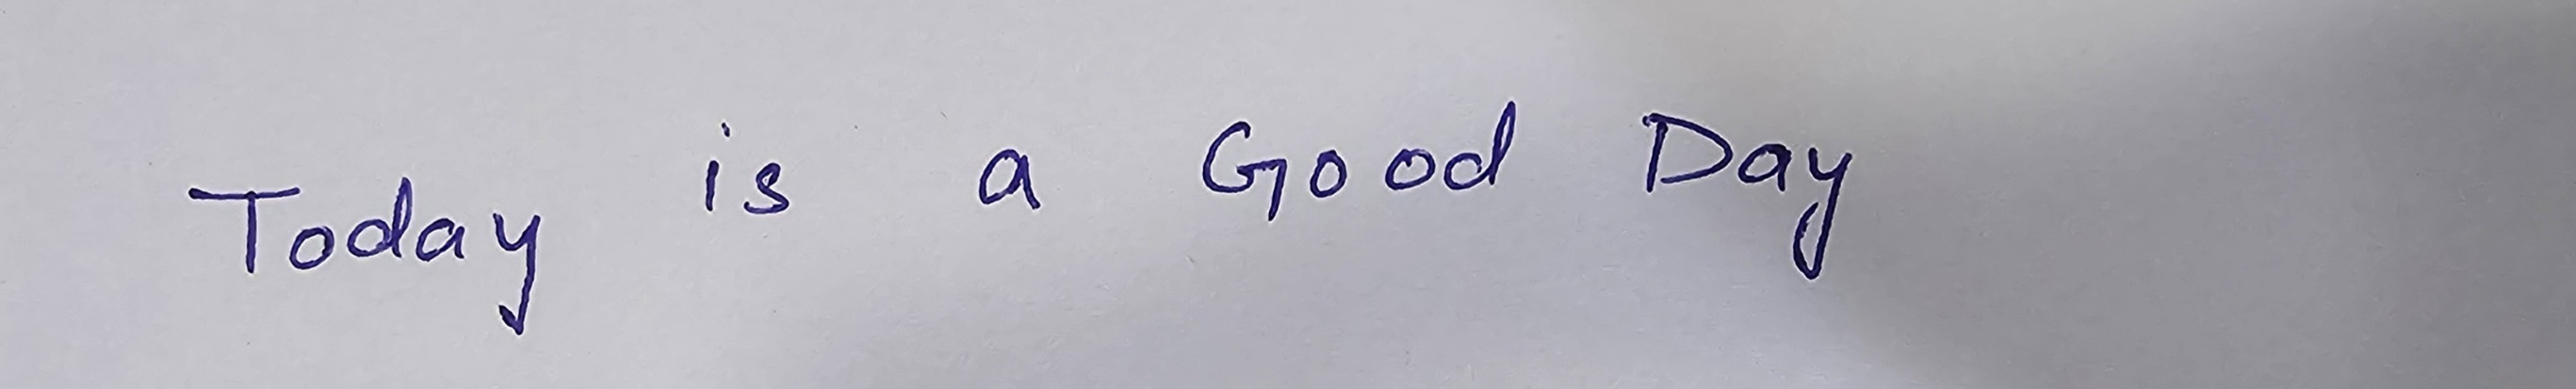 Today is a Good Day